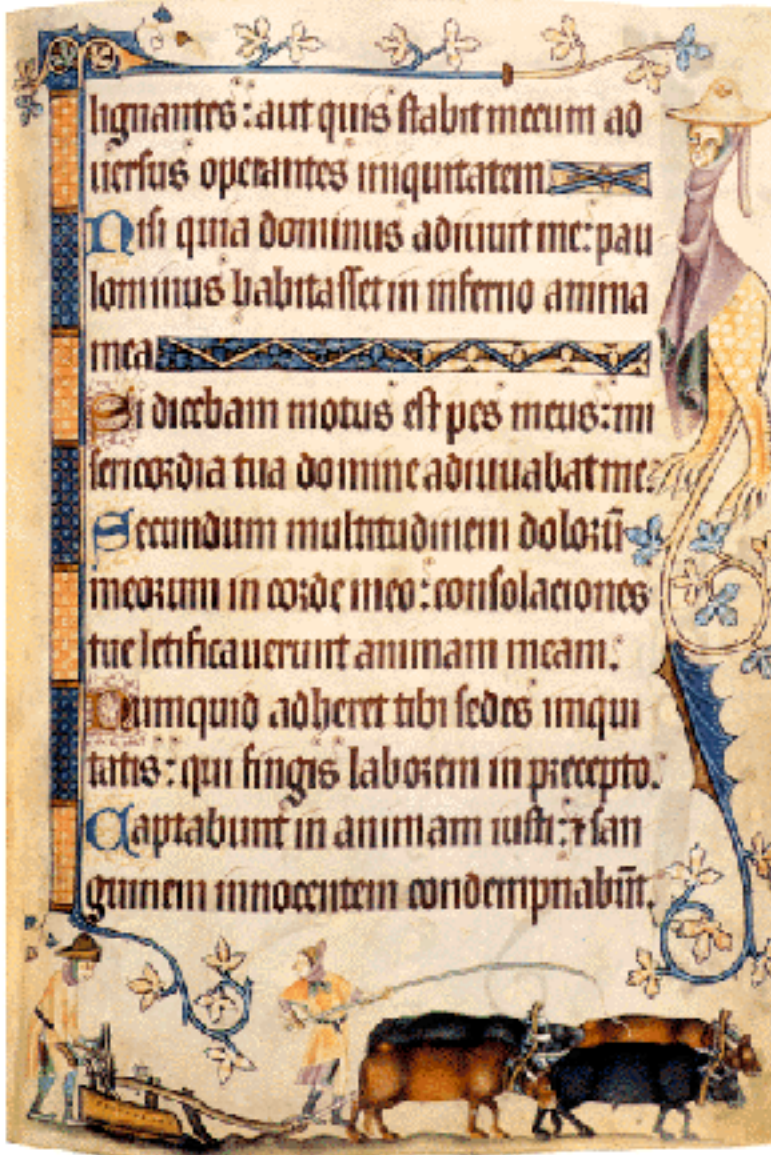 lignantes : aut quis stabit mecum ad
versus operantes iniquitatem
Nisi quia dominus adiuuit me : pau
lominus habitasset in inferno anima
mea
Si dicebam motus est pes meus : mi
sericordia tua domine adiuuabat me :
Secundum multitudinem dolorū
meorum in corde meo : consolaciones
tue letificauerunt animam meam .
Numquid adheret tibi sedes iniqui
tatis : qui fingis laborem in precepto .
Captabunt in animam iusti : ⁊ san
guinem innocentem condempnabūt .